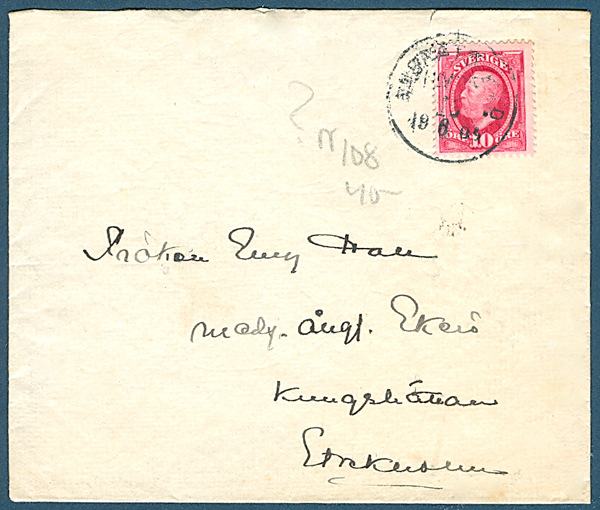 SVERIGE
10 ÖRE
19 8 95
?
N 108
40-
Fröken Emy Hall
med ångf. Ekerö
Kungshättan
Stockholm